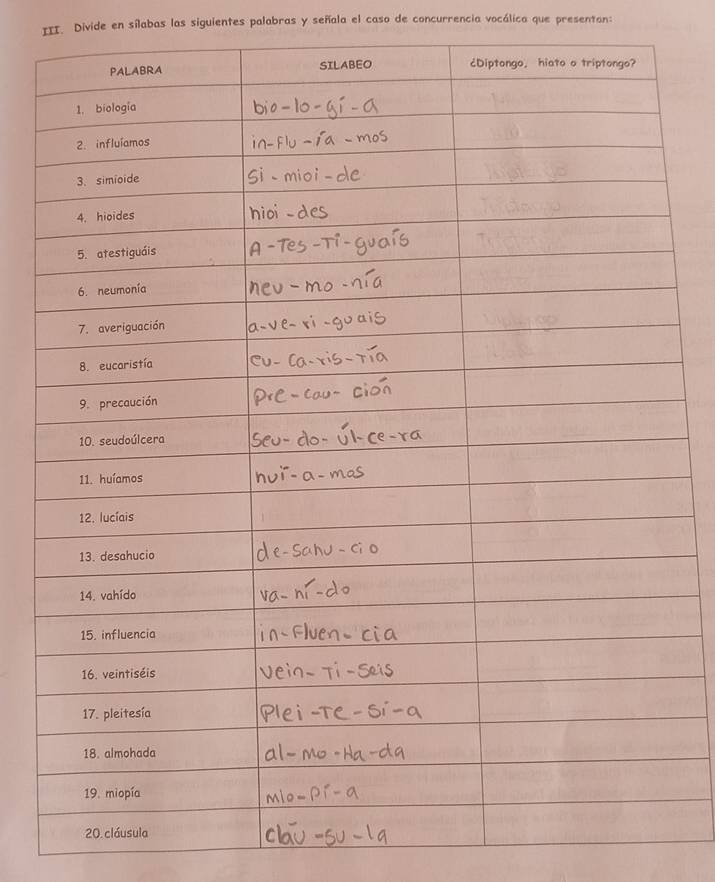 III. Divide en sílabas las siguientes palabras y señala el caso de concurrencia vocálica que presentan:
PALABRA SILABEO ¿Diptongo, hiato o triptongo?
1. biología bio-lo-gí-a
2. influíamos in-flu-ía-mos
3. simioide si-mioi-de
4. hioides hioi-des
5. atestiguáis A-Tes-Ti-guaís
6. neumonía neu-mo-nía
7. averiguación a-ve-ri-guais
8. eucaristía eu-ca-ris-Tía
9. precaución pre-cau-ción
10. seudoúlcera seu-do-úl-ce-ra
11. huíamos huí-a-mos
12. lucíais
13. desahucio de-sahu-cio
14. vahído va-hí-do
15. influencia in-fluen-cia
16. veintiséis vein-Ti-seis
17. pleitesía Plei-Te-sí-a
18. almohada al-mo-Ha-da
19. miopía mio-pí-a
20. cláusula claú-su-la